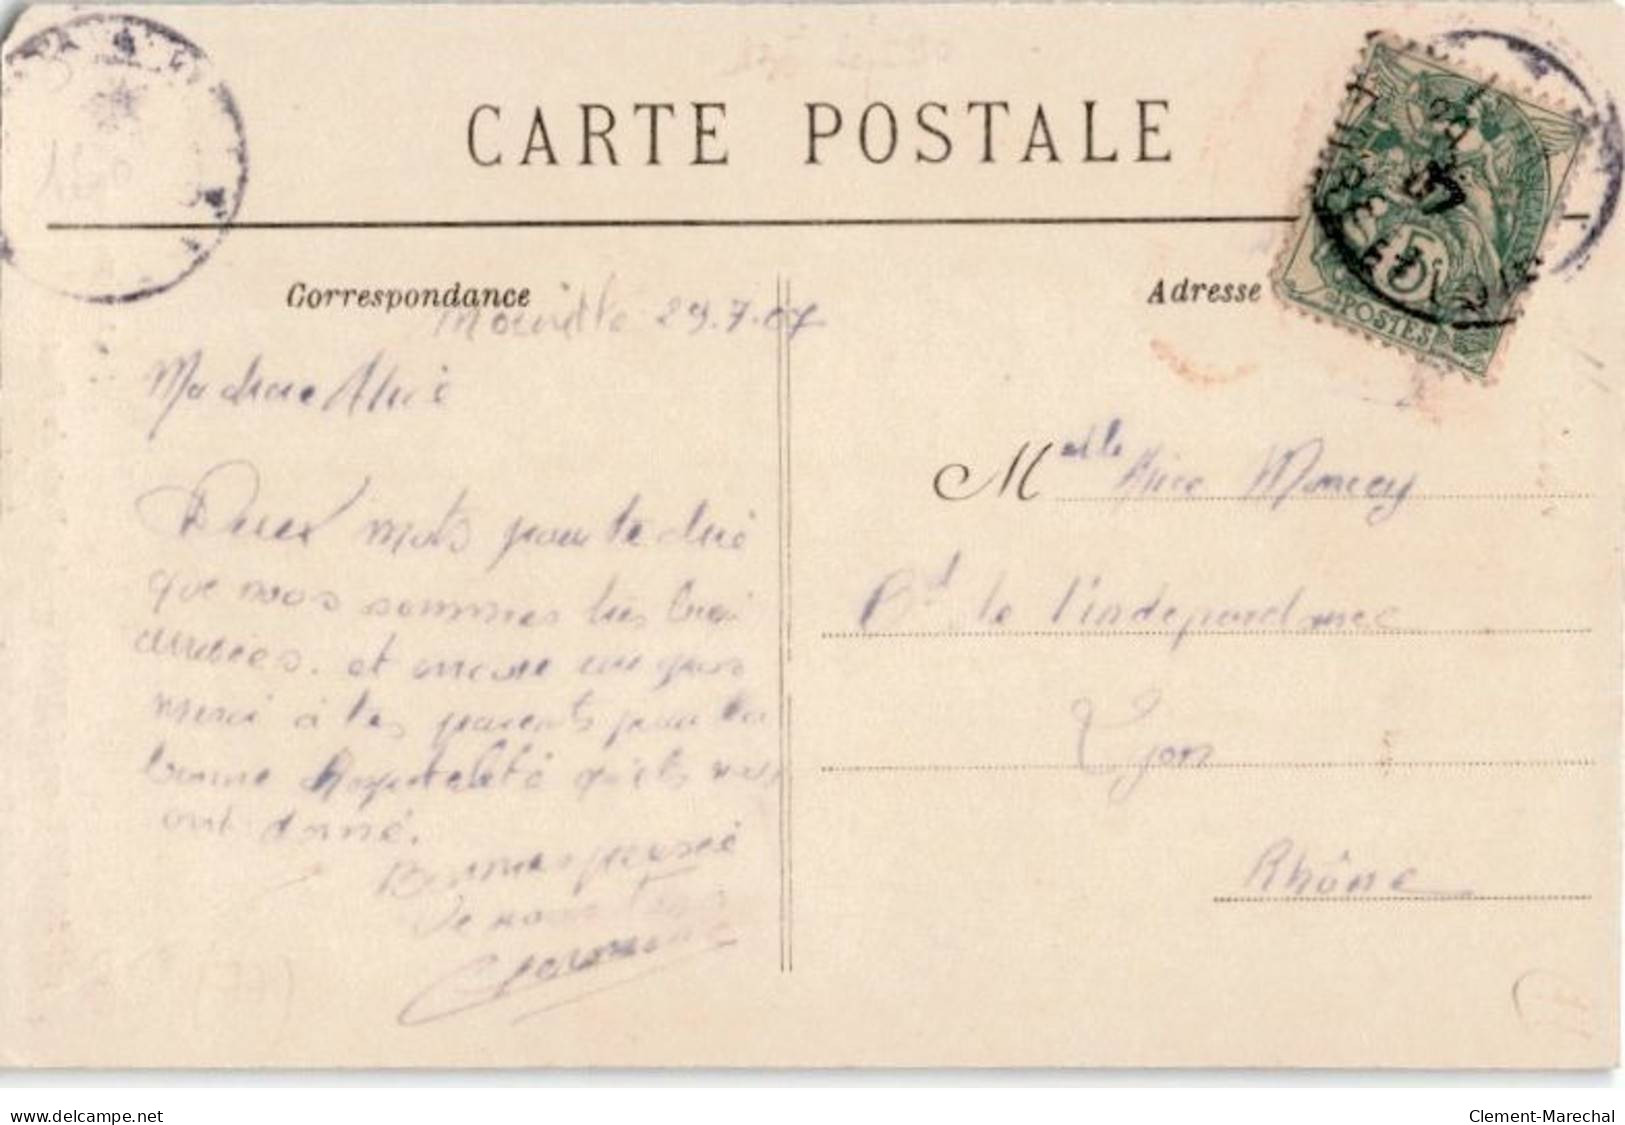 CARTE POSTALE
Correspondance
Adresse
29
07
5
POSTES
29.7.07
Ma chere Alice
Deux mots pour te dire
que nous sommes très bien
arrivées. et encore un gros
merci à tes parents pour la
bonne hospitalité qu'ils nous
ont donné.
Bonnes
De nous
Melle Alice Moncey
Bd de l'independance
Lyon
Rhône
www.delcampe.net
Clement-Marechal